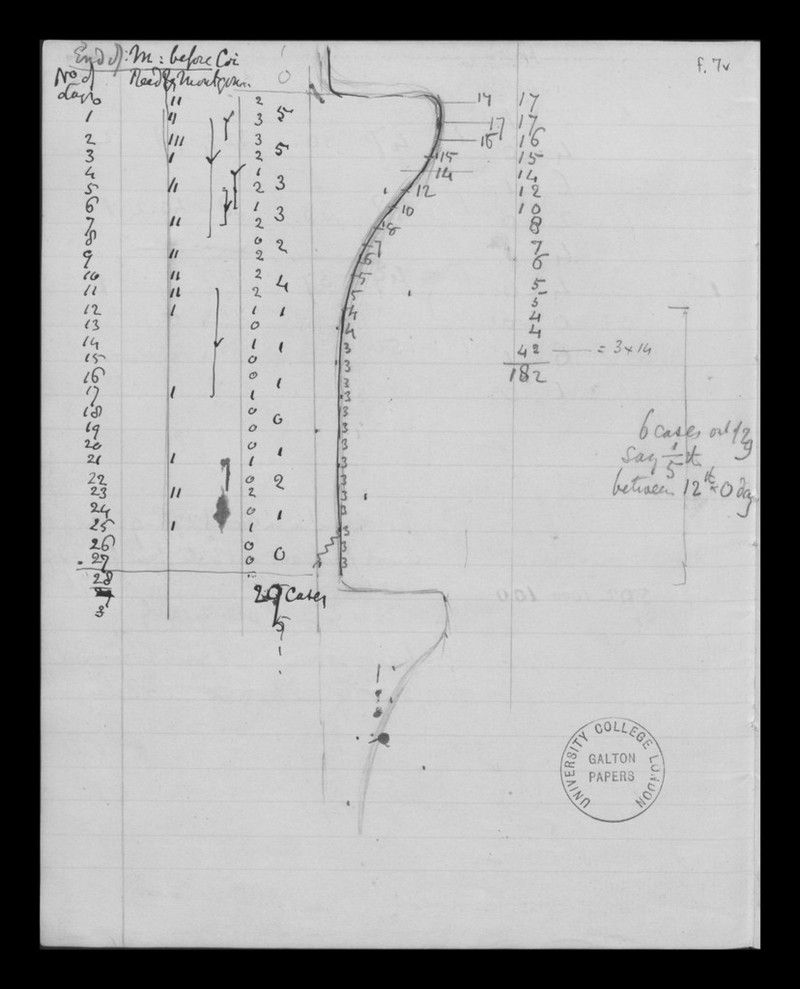 f. 7v
End of: M: before Coi
No of Reed & Montgom. 0
days 11 2 17 17
1 11 3 5 17 17
2 111 3 16 16
3 1 2 5 15 15
4 1 14 14
5 11 2 3 12 12
6 1 10 10
7 11 2 3 8 8
8 0 7 7
9 11 2 2 6 6
10 11 2 5 5
11 11 2 4 5 5
12 1 1 1 4 4
13 0 4 4
14 1 1 3 42 = 3 x 14
15 0 3 182
16 0 3
17 1 1 1 3
18 0 3
19 0 0 3 6 cases out of 29
20 0 3 say 1/5 th
21 1 1 1 3 between 12th & 0 day
22 0 3
23 11 2 2 3
24 0 3
25 1 1 1 3
26 0 3
27 0 0 3
28
29 cases
3
5
1
UNIVERSITY COLLEGE LONDON
GALTON
PAPERS